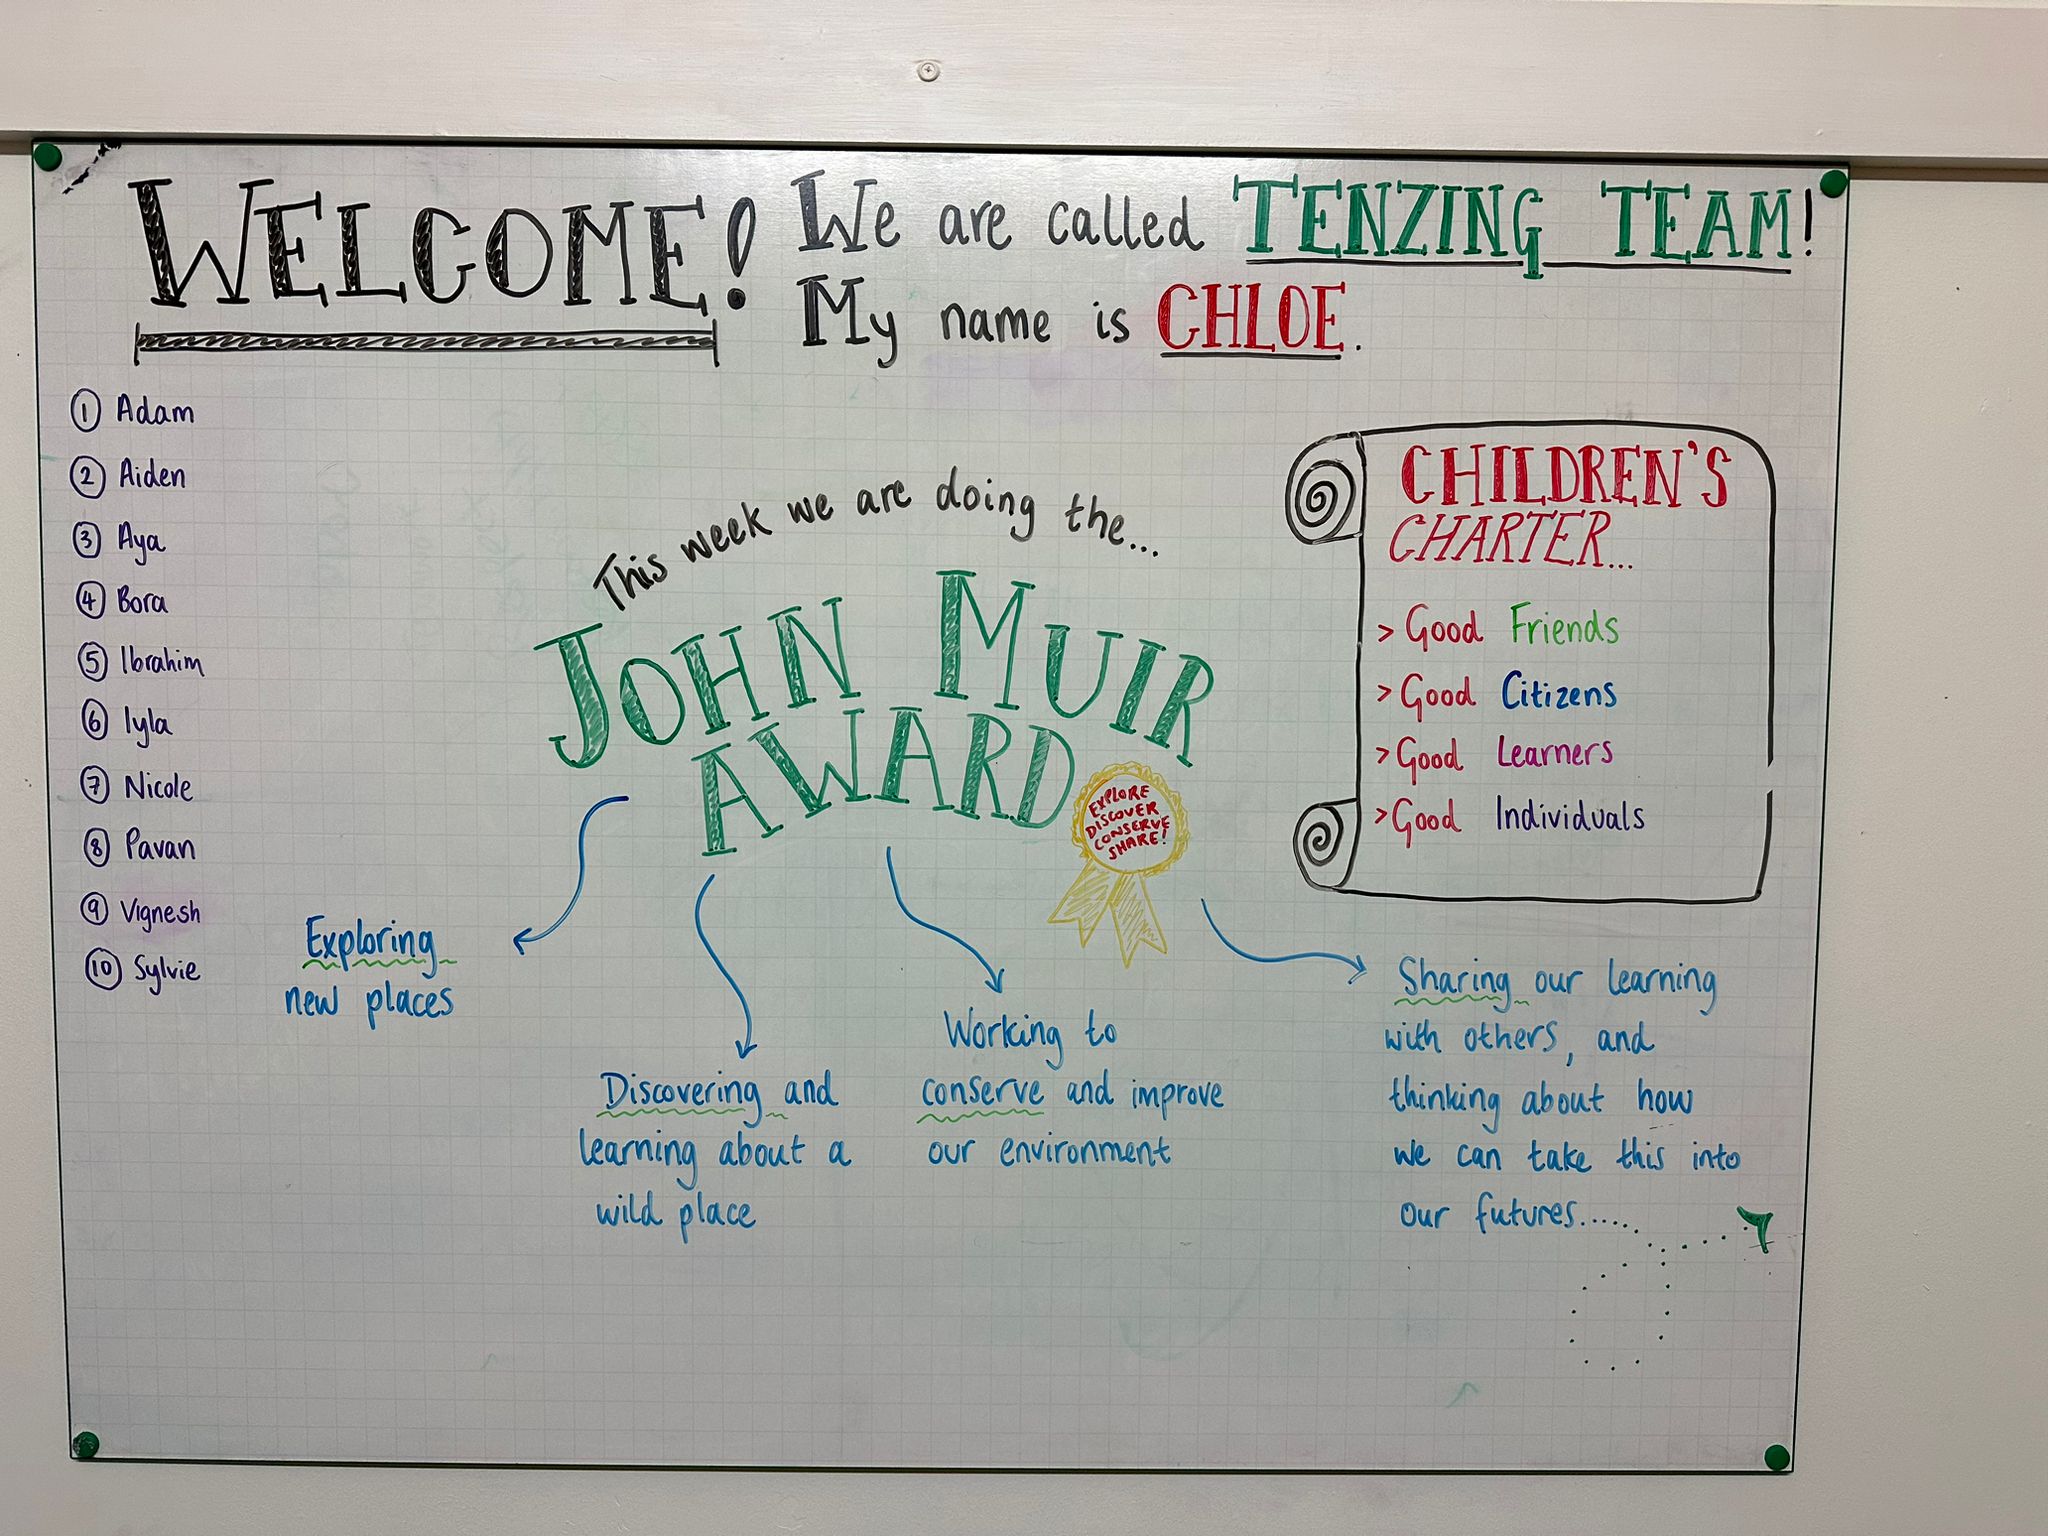 WELCOME!
We are called TENZING TEAM!
My name is CHLOE.
1 Adam
2 Aiden
3 Aya
4 Bora
5 Ibrahim
6 Iyla
7 Nicole
8 Pavan
9 Vignesh
10 Sylvie
This week we are doing the...
JOHN MUIR
AWARD
EXPLORE
DISCOVER
CONSERVE
SHARE!
CHILDREN'S
CHARTER...
> Good Friends
> Good Citizens
> Good Learners
> Good Individuals
Exploring
new places
Discovering and
learning about a
wild place
Working to
conserve and improve
our environment
Sharing our learning
with others, and
thinking about how
we can take this into
our futures......